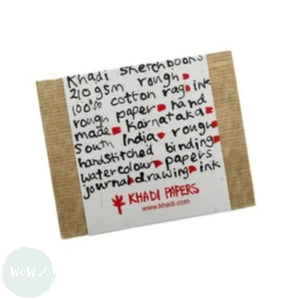 Khadi sketchbooks
210 gsm rough
100% cotton rag ink
rough paper hand
made Karnataka
South India rough
handstitched binding
watercolour papers
journal drawing ink
KHADI PAPERS
www.khadi.com
WoW!